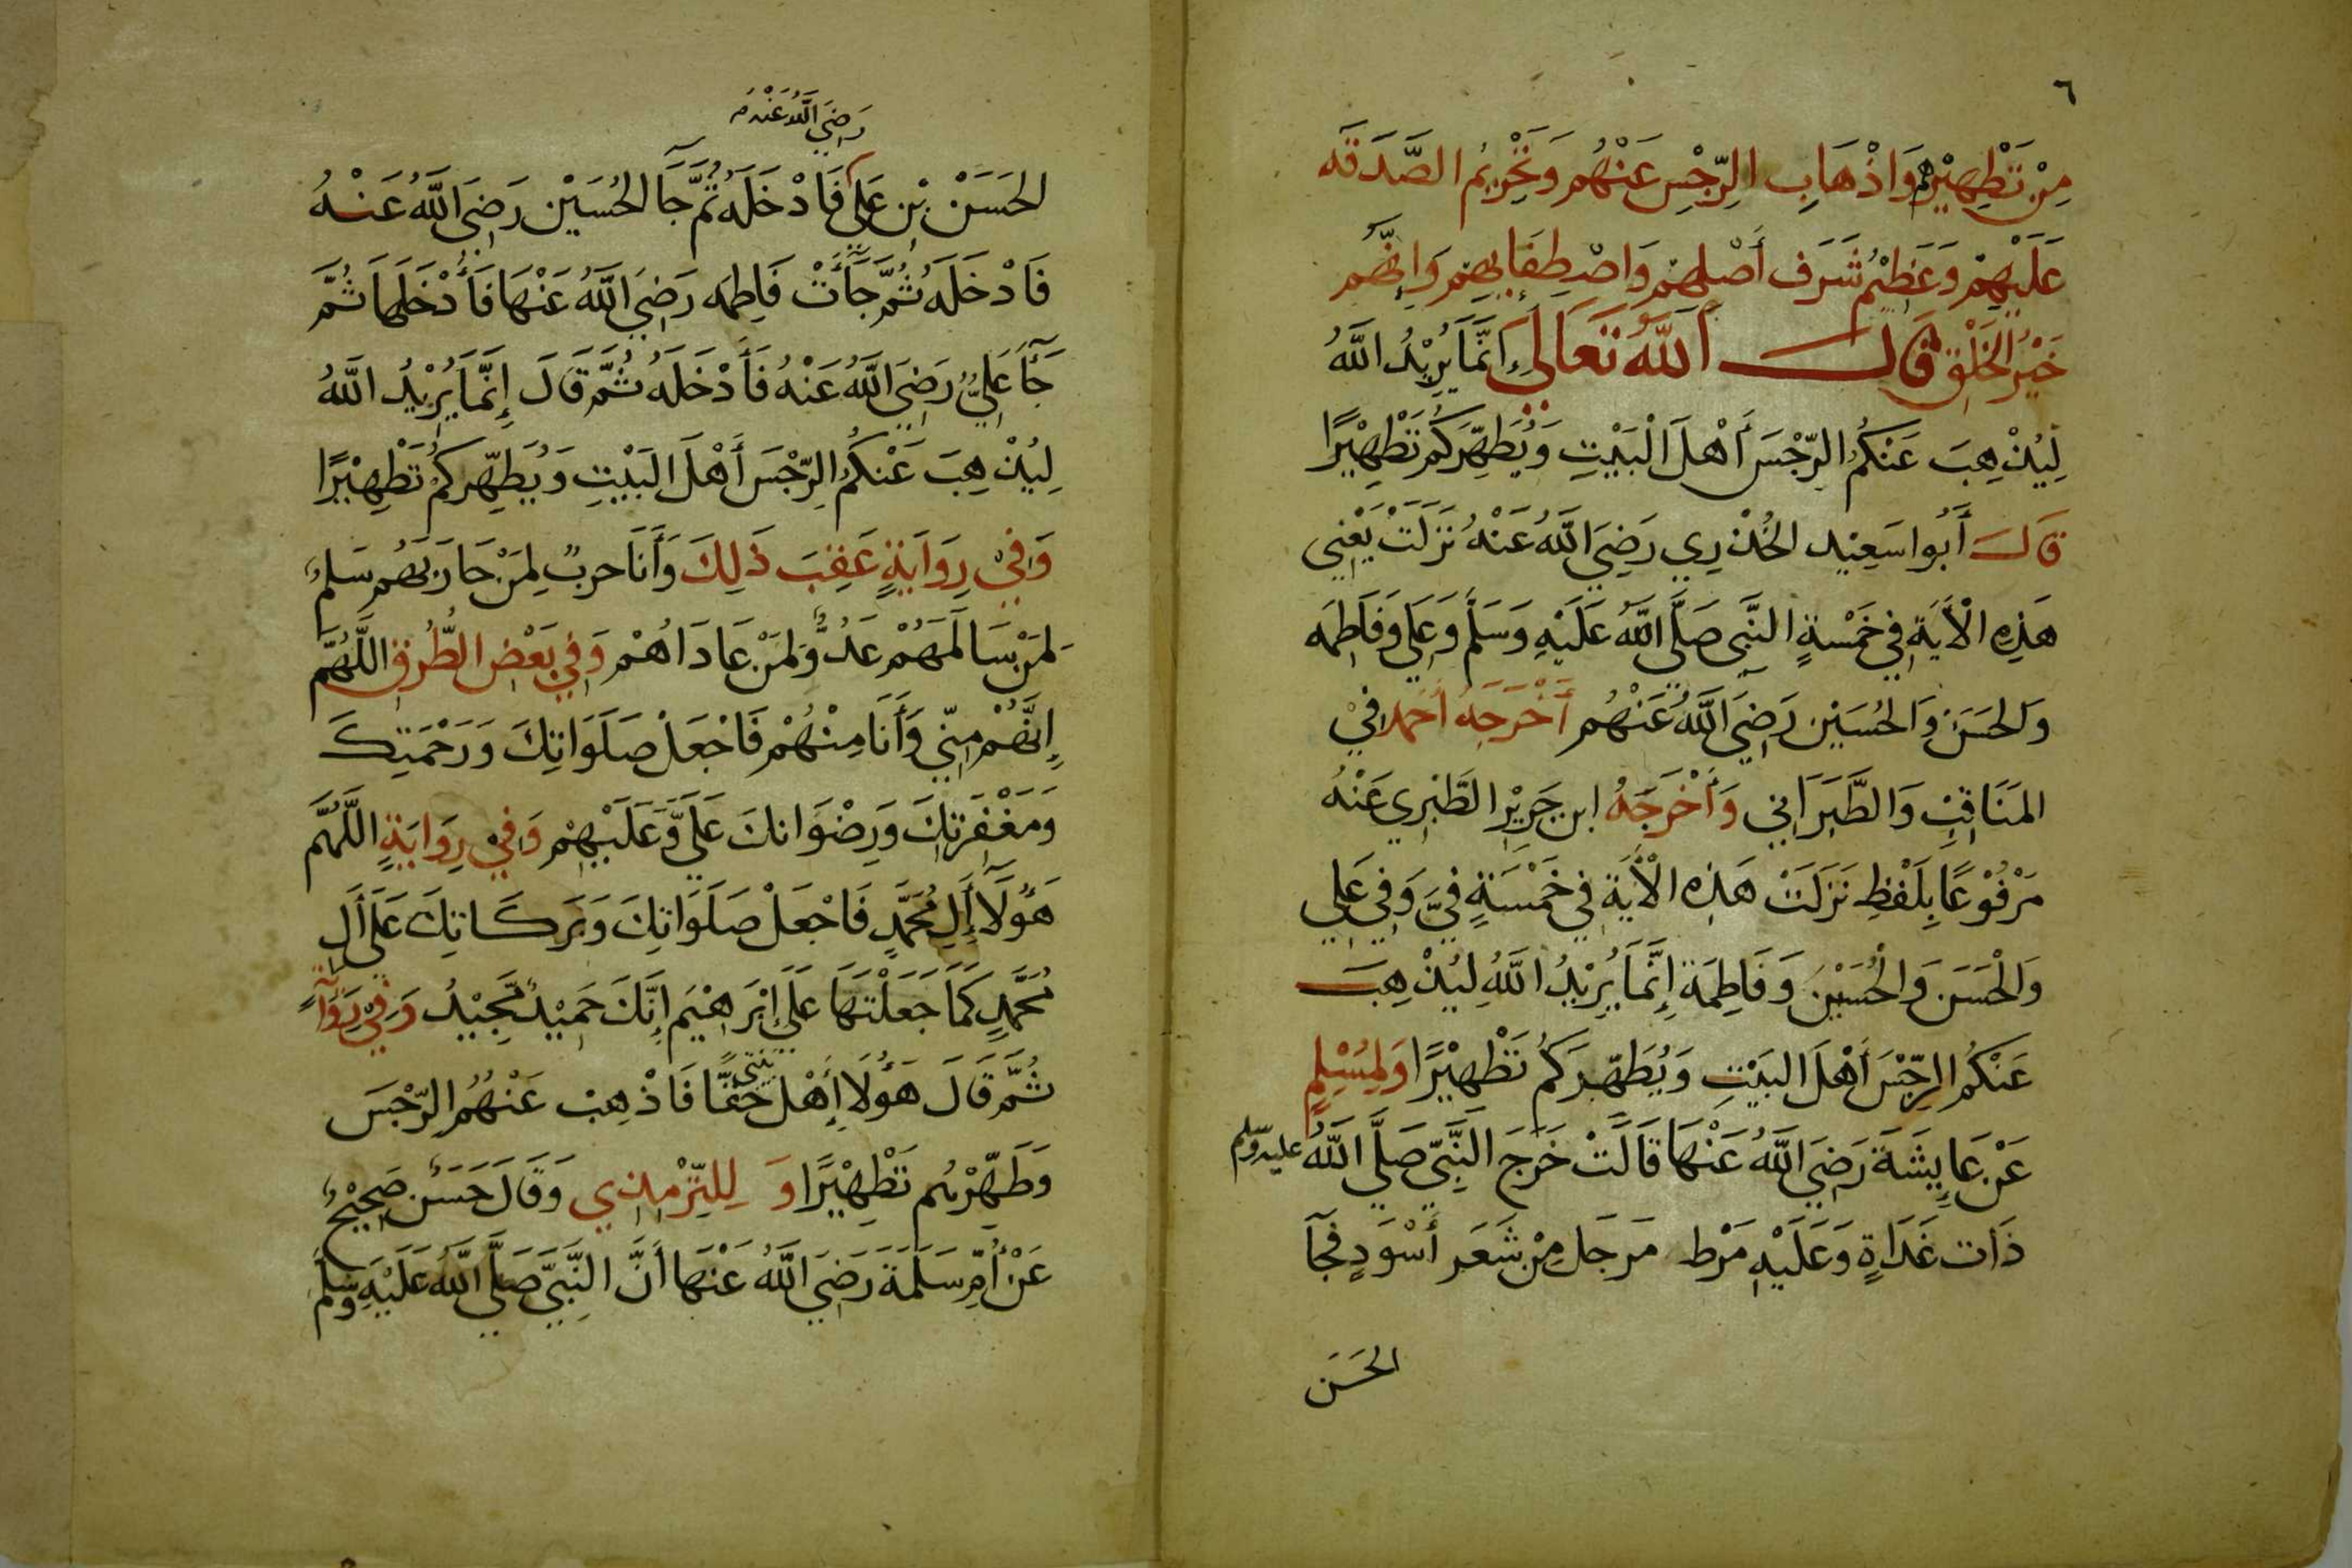 ٦
مِنْ تَطْهِيْرِهِمْ وَاذْهَابِ الرِّجْسِ عَنْهُم وَتَحْرِيْمِ الصَّدَقَه
عَلَيْهِمْ وَعَظِيْمِ شَرَفِ أَصْلِهِمْ وَاصْطِفَائِهِمْ وَاِنَّهُم
خَيْرُ الخَلْقِ قَالَ اَللّٰهُ تَعَالَى اِنَّمَا يُرِيْدُ اللّٰهُ
لِيُذْهِبَ عَنْكُمُ الرِّجْسَ أَهْلَ الْبَيْتِ وَيُطَهِّرَكُمْ تَطْهِيْرًا
قَالَ أَبُوا سَعِيْدِ الخُدْرِي رَضِيَ اللّٰهُ عَنْهُ نَزَلَتْ يَعْنِي
هَذِهِ الْأَيَةِ فِي خَمْسَةٍ النَّبِي صَلَّى اللّٰهُ عَلَيْهِ وَسَلَّم وَعَلِي وَفَاطِمَه
وَالحَسَنِ وَالحُسَيْنِ رَضِيَ اللّٰهُ عَنْهُم أَخْرَجَهُ أَحْمَدُ فِيْ
المَنَاقِبِ وَالطَّبَرَانِي وَأَخْرَجَهُ ابن جَرِيْرِ الطَّبْرِي عَنْهُ
مَرْفُوْعًا بِلَفْظِ نَزَلَتْ هَذِهِ الْأَيَة فِي خَمْسَةٍ فِيَّ وَفِي عَلِي
وَالْحَسَنِ وَالْحُسَيْنِ وَفَاطِمَة إِنَّمَا يُرِيْدُ اللّٰهُ لِيُذْهِبَ
عَنْكُمُ الرِّجْسَ أَهْلَ البَيْتِ وَيُطَهِّرَكُمْ تَطْهِيْرًا وَلِمُسْلِمٍ
عَنْ عَايِشَةَ رَضِيَ اللّٰهُ عَنْهَا قَالَتْ خَرَجَ النَّبِيّ صَلَّى اللّٰهُ عليه وسلم
ذَات غَدَاةٍ وَعَلَيْهِ مَرْط مَرجَل مِنْ شَعَرِ أَسْوَدٍ فَجَآ
الحَسَن
رَضِيَ اللّٰهُ عَنْهُ
الحَسَنْ بْنِ عَلِي فَادْخَلَهُ ثُمَّ جَآ الحُسَيْن رَضِيَ اللّٰهُ عَنْهُ
فَادْخَلَهُ ثُمَّ جَأَتْ فَاطِمَه رَضِيَ اللّٰهُ عَنْهَا فَأَدْخَلَهَا ثُمَّ
جَأَ عَلِيٌّ رَضِيَ اللّٰهُ عَنْهُ فَأَدْخَلَهُ ثُمَّ قَالَ إِنَّمَا يُرِيْدُ اللّٰهُ
لِيُذْهِبَ عَنْكُمُ الرِّجْسَ أَهْلَ البَيْتِ وَيُطَهِّرَكُمْ تَطْهِيْرًا
وَفِيْ رِوَايَةٍ عَقِبَ ذَلِكَ وَأَنَا حربٌ لِمَنْ حَارَبَهُم سَلمٌ
لِمَنْ سَالَمَهُمْ عَدُوٌّ لِمَنْ عَادَاهُمْ وَفِي بَعْضِ الطُّرُقِ اللَّهُمَّ
اِنَّهُمْ مِنِّي وَأَنَا مِنْهُمْ فَاجْعَلْ صَلَوَاتِكَ وَرَحْمَتِكَ
وَمَغْفِرَتِكَ وَرِضْوَانكَ عَلَيَّ وَعَلَيْهِمْ وَفِيْ رِوَايَةٍ اللَّهُمَّ
هَؤُلَآ أٰلِ مُحَمَّدٍ فَاجْعَلْ صَلَوَاتِكَ وَبَرَكَاتِكَ عَلَى أٰلِ
مُحَمَّدٍ كَمَا جَعَلْتَهَا عَلَى إِبْرَاهِيْمَ إِنَّكَ حَمِيْدٌ مَّجِيْدٌ وَفِيْ رِوَآ
ثُمَّ قَالَ هَؤُلَا أَهْل بَيْتِي حَقًّا فَاذْهِبْ عَنْهُمُ الرِّجْسَ
وَطَهِّرْهُم تَطْهِيْرًا وَ لِلتِّرْمِذِي وَقَالَ حَسَنٌ صَحِيْحٌ
عَنْ أُمِّ سَلَمَة رَضِيَ اللّٰهُ عَنْهَا أَنَّ النَّبِيَّ صَلَّى اللّٰهُ عَلَيْهِ وَسَلَّمَ